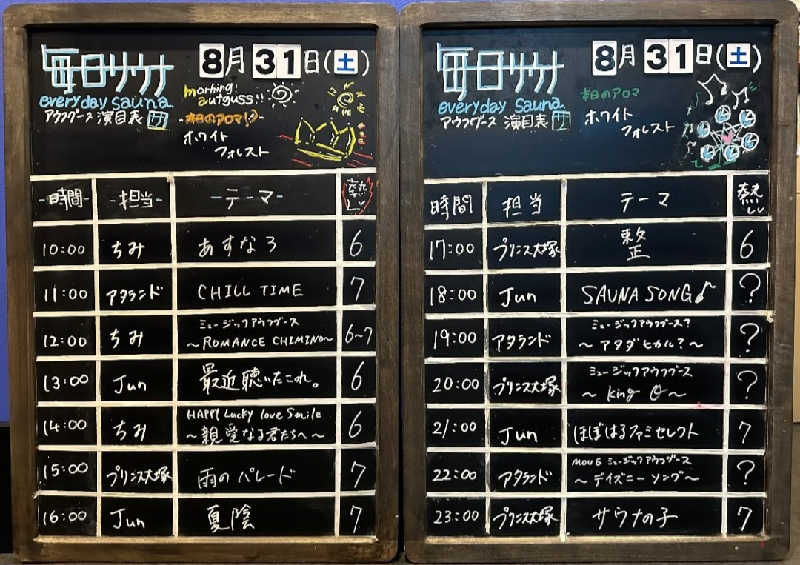 毎日サウナ 8月31日(土)
everyday sauna
アウフグース 演目表
morning!
autguss!!
本日のアロマ!?
ホワイト
フォレスト
-時間- -担当- -テーマ- 熱Lv
10:00 ちみ あすなろ 6
11:00 アタランド CHILL TIME 7
12:00 ちみ ミュージックアウフグース
~ROMANCE CHIMINO~ 6~7
13:00 Jun 最近聴いたこれ。 6
14:00 ちみ HAPPY Lucky love Smile
~親愛なる君たちへ~ 6
15:00 プリンス大塚 雨のパレード 7
16:00 Jun 夏陰 7
毎日サウナ 8月31日(土)
everyday Sauna
アウフグース 演目表
本日のアロマ
ホワイト
フォレスト
時間 担当 テーマ 熱Lv
17:00 プリンス大塚 正 6
18:00 Jun SAUNA SONG♪ ?
19:00 アタランド ミュージックアウフグース?
~アタダヒカル?~ ?
20:00 プリンス大塚 ミュージックアウフグース
~King ~ ?
21:00 Jun ほぼはるファミセレクト 7
22:00 アタランド ミュージックアウフグース
~デイズニーソング~ ?
23:00 プリンス大塚 サウナの子 7